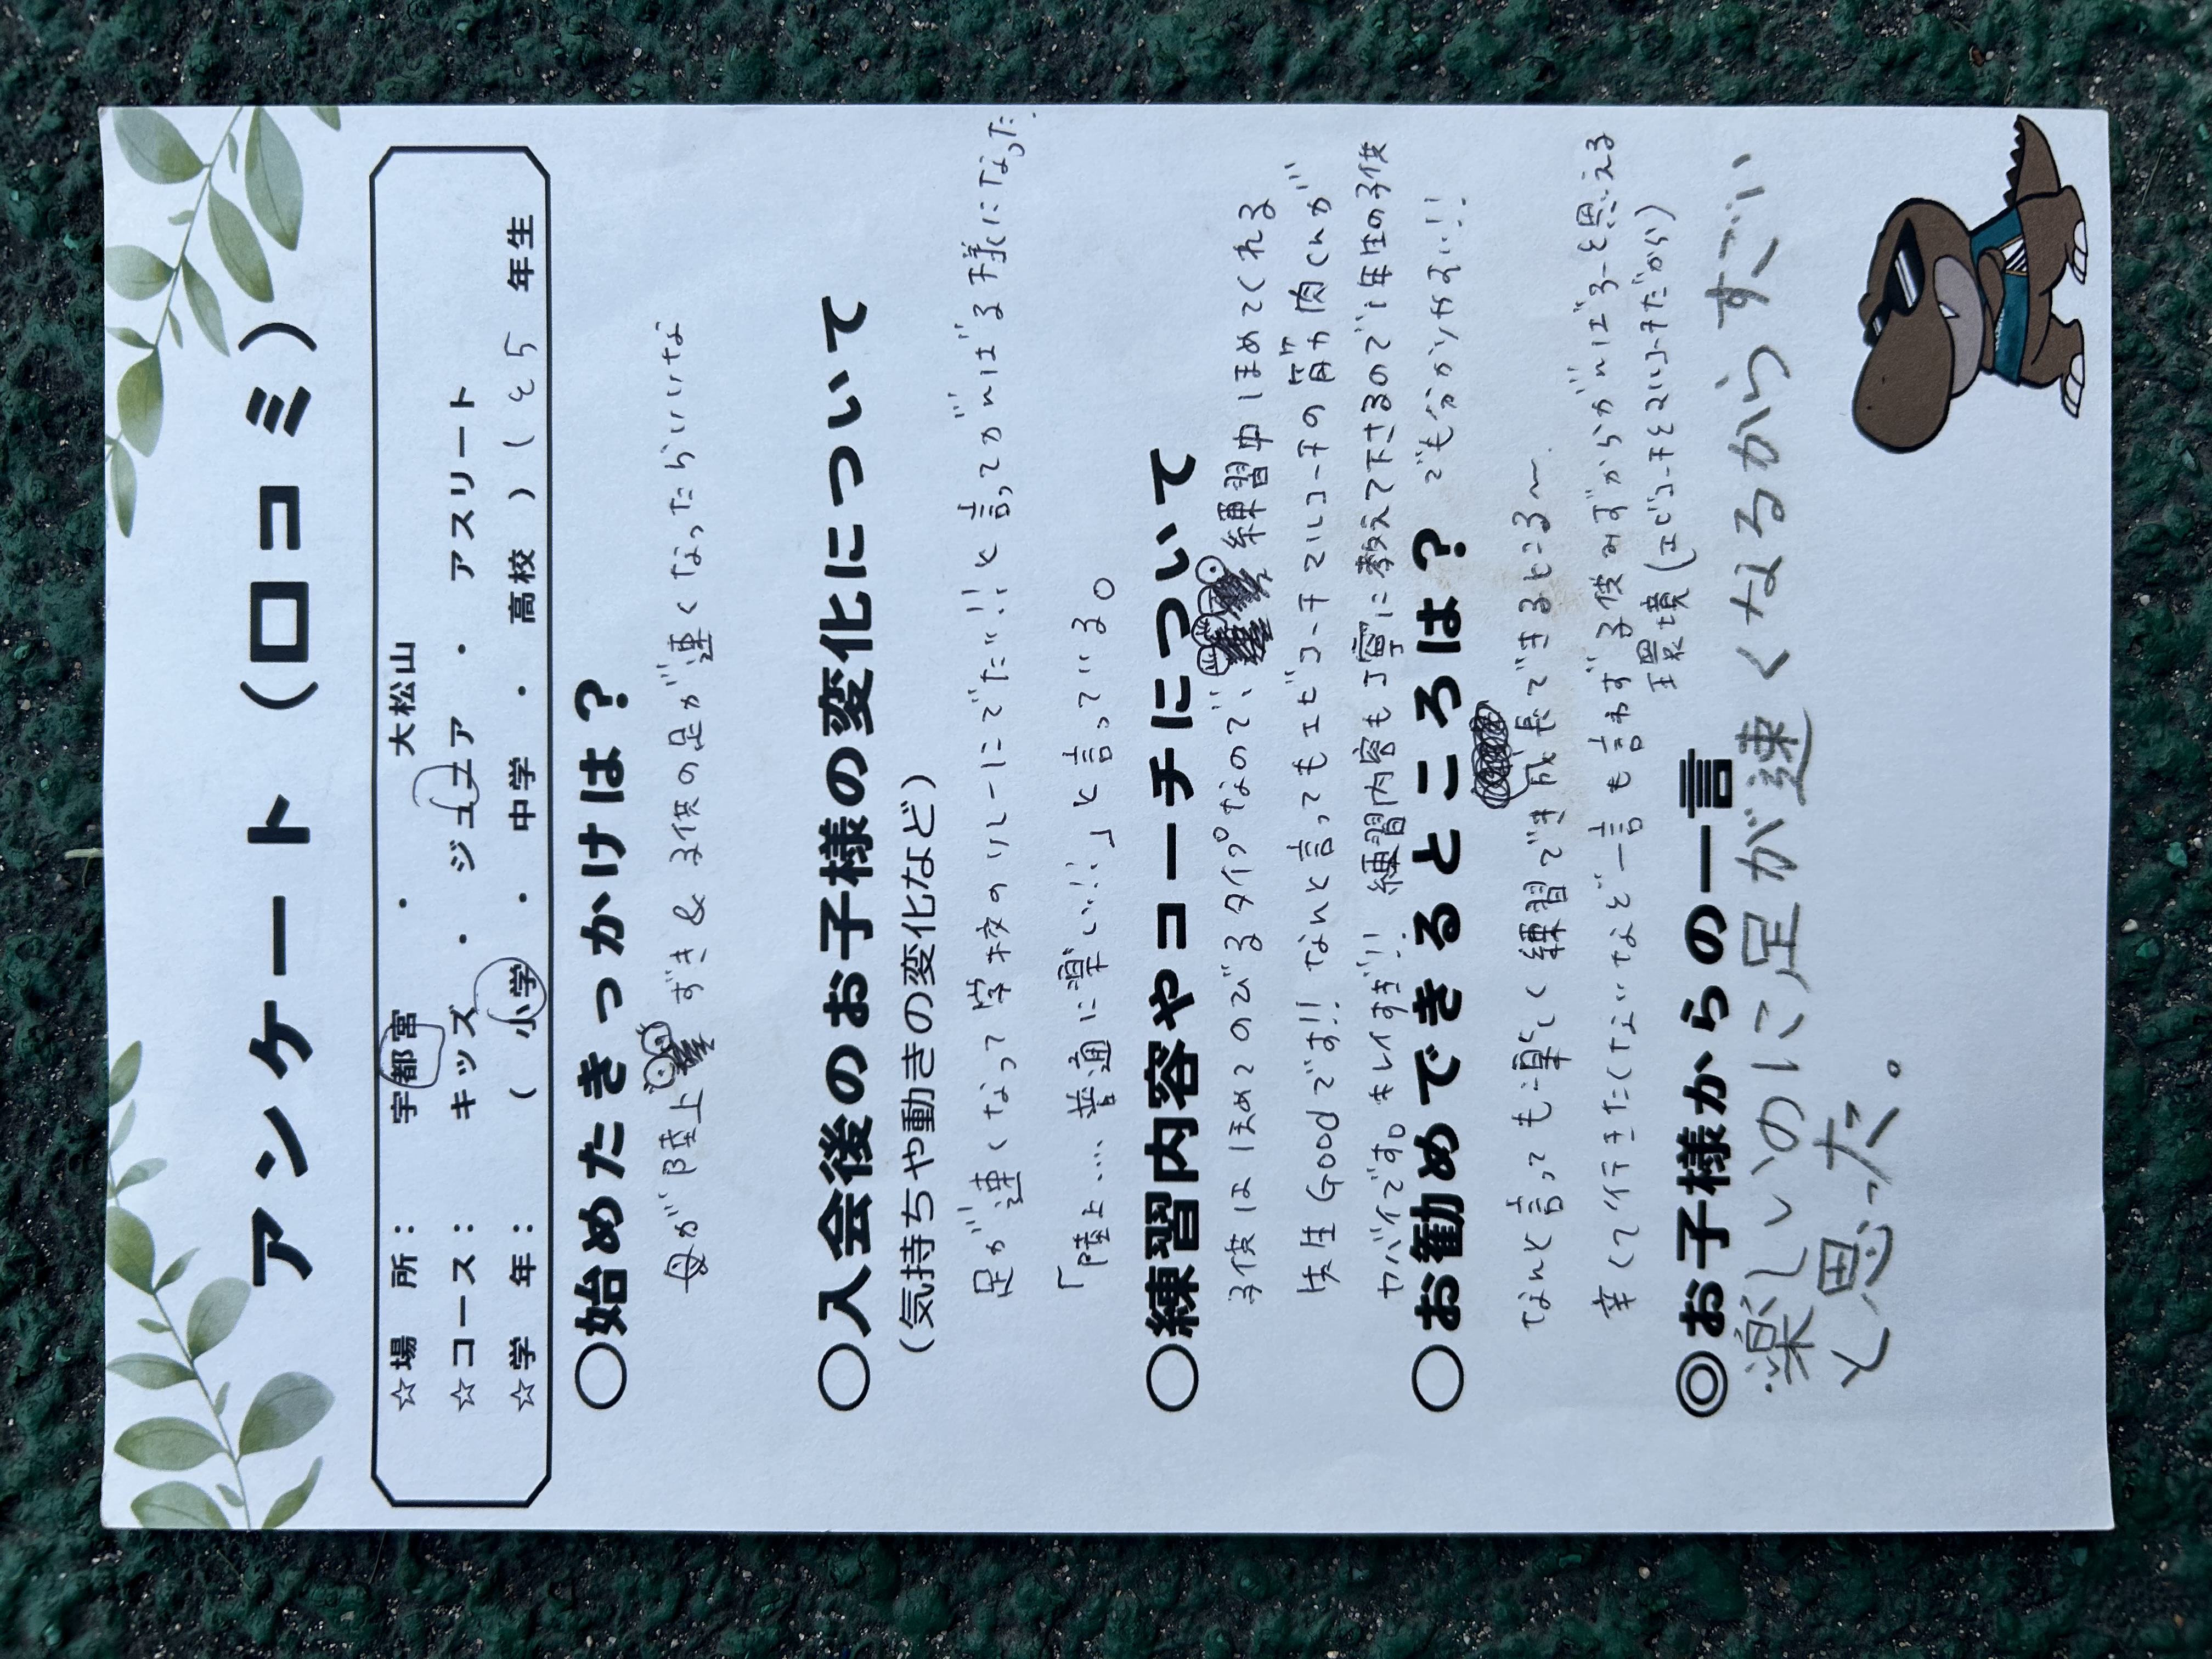 アンケート（口コミ）
☆場　所：　宇都宮　・　大松山
☆コース：　キッズ　・　ジュニア　・　アスリート
☆学　年：　（　小学　・　中学　・　高校　）（ 1と5 年生
○始めたきっかけは？
母が陸上ずき & 子供の足が速くなったらいいな
○入会後のお子様の変化について
（気持ちや動きの変化など）
足が速くなって学校のリレーにでた!!と言ってがんばる様になった
「陸上… 普通に楽しい!!」と言ってる。
○練習内容やコーチについて
子供はほめてのびるタイプなので、練習中ほめてくれる
先生Goodです!! なんと言ってもエビコーチ マルコーチの筋肉くんが
ヤバイです。キレイすぎ!! 練習内容も丁寧に教えて下さるので1年生の子供
でも分かりやすい!!
○お勧めできるところは？
なんと言っても楽しく練習でき成長できるところ〜
辛くて行きたくないなど一言も言わず子供みずからがんばろーと思える
環境(エビコーチとマルコーチだから)
◎お子様からの一言
楽しいのに足が速くなるからすごい
と思った。